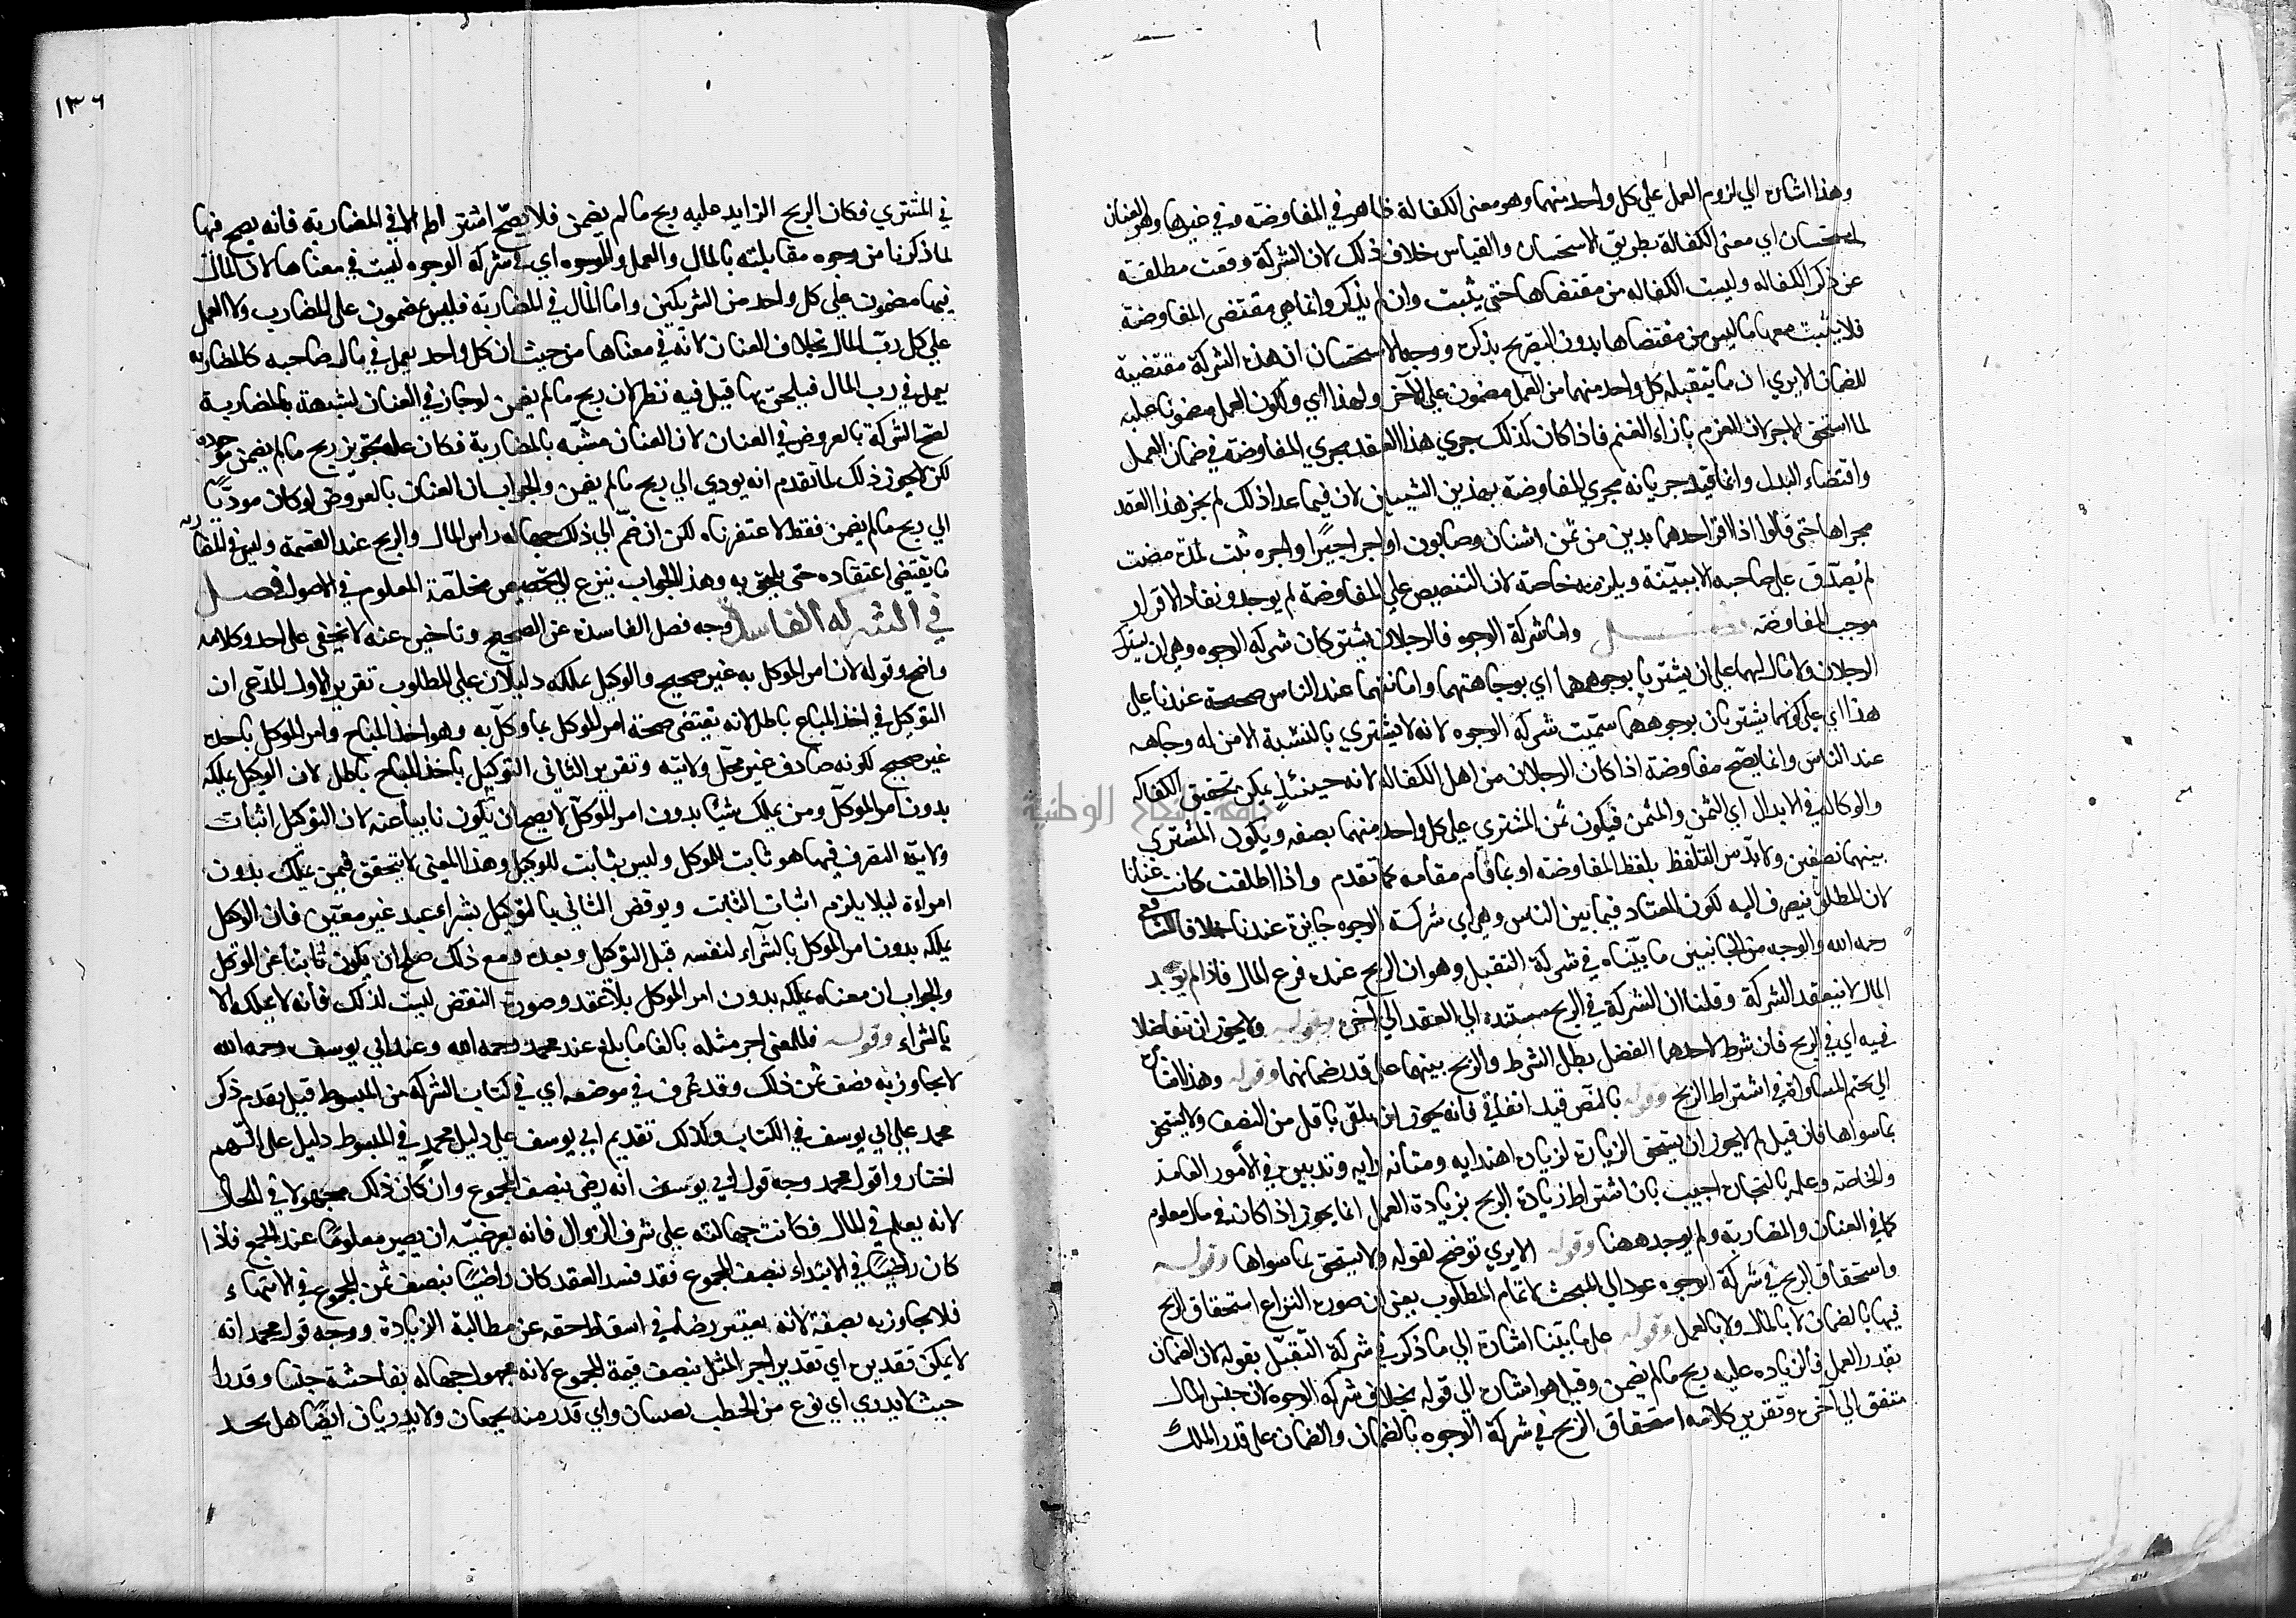 وهذا اشارة الي لزوم العمل علي كل واحد منهما وهو معني الكفالة ظاهر في المفاوضة وفي غيرها وهو العنان
استحسان اي معني الكفالة بطريق الاستحسان والقياس خلاف ذلك لان الشركة وقعت مطلقة
عن ذكر الكفاله وليست الكفاله من مقتضاها حتي يثبت وان لم يذكر وانما هي مقتضي المفاوضة
فلا يثبت معها ما ليس من مقتضاها بدون التصريح بذكره ووجه الاستحسان ان هذه الشركة مقتضية
للضمان الا يري ان ما يتقبله كل واحد منهما من العمل مضمون علي الآخر ولهذا اي ولكون العمل مضمونا عليه
لما استحق الاجر لان الغرم بازاء الغنم فاذا كان كذلك جري هذا العقد مجري المفاوضة في ضمان العمل
واقتضاء البدل وانما قيد جريانه مجري المفاوضة بهذين الشيئين لان فيما عدا ذلك لم يجز هذا العقد
مجراها حتي قالوا اذا اقر احدهما بدين من ثمن اشنان وصابون او اجر اجيرًا واجره بيت لمدة مضت
لم يصدّق علي صاحبه الا ببيّنة ويلزمه خاصة لان التنصيص علي المفاوضة لم يوجد ونفاذ الاقرار
موجب المفاوضه واما شركة الوجوه فالرجلان يشتركان شركة الوجوه وهي ان يشترك
الرجلان ولا مال لهما علي ان يشتريا بوجوههما اي بوجاهتهما وامانتهما عند الناس صحيحة عندنا علي
هذا اي علي كونهما يشتريان بوجوههما سمّيت شركة الوجوه لانه لا يشتري بالنسئة الا من له وجاهه
عند الناس وانما يصح مفاوضة اذا كان الرجلان من اهل الكفاله لانه حينئذٍ يمكن تحقيق الكفاله
والوكالة في الابدال اي الثمن والمثمن فيكون ثمن المشتري علي كل واحد منهما بصفه ويكون المشتري
بينهما نصفين ولا بدّ من التلفظ بلفظ المفاوضة او بما قام مقامه كما تقدم واذا اطلقت كانت عنانا
لان المطلق ينصرف اليه لكونه المعتاد فيما بين الناس وهي اي شركة الوجوه جايزة عندنا خلافا للشافعي
رحمه الله والوجه من الجانبين ما بيّناه في شركة التقبل وهو ان الربح عنده فرع المال فاذا لم يوجد
المال لا ينعقد الشركة وقلنا ان الشركة في الربح مستندة الي العقد الي آخره وقوله ولا يجوز ان يتفاضلا
فيه اي في الربح فان شرط لاحدهما الفضل بطل الشرط والربح بينهما علي قدر ضمانهما وقوله وهذا اشارة
الي تحتم المساواة في اشتراط الربح وقوله بالنصف قيد اتفاقي فانه يجوز ان يلقي باقل من النصف ولا يستحق
بما سواها فان قيل لم لا يجوز ان يستحق الزيادة لزيادة اهتدايه ومتانة رايه وتدبيره في الأمور العامة
والخاصه وعلمه بالتجارة اجيب بان اشتراط زيادة الربح بزيادة العمل انما يجوز اذا كان في مال معلوم
كما في العنان والمضاربة ولم يوجد ههنا وقوله الا يري توضيح لقوله ولا يستحق بما سواها وقوله
واستحقاق الربح في شركة الوجوه عود الي المبحث لاتمام المطلوب يعني ان صورة النزاع استحقاق الربح
فيها بالضمان لا بالمال ولا بالعمل وقوله علي ما بيّنا اشارة الي ما ذكر في شركة التقبّل بقوله لان الضمان
بقدر العمل فالزياده عليه ربح ما لم يضمن وقيل هو اشارة الي قوله بخلاف شركة الوجوه لان جنس المال
متفق الي آخره وتقرير كلامه استحقاق الربح في شركة الوجوه بالضمان والضمان علي قدر الملك
١٣٦
في المشتري فكان الربح الزايد عليه ربح ما لم يضمن فلا يصحّ اشتراطه الا في المضاربة فانه يصح فيها
لما ذكرنا من وجوه مقابلته بالمال والعمل والوجوه اي في شركة الوجوه ليست في معناها لان المال
فيها مضمون علي كل واحد من الشريكين واما المال في المضاربة فليس بمضمون علي المضارب ولا العمل
علي كل ربّ المال بخلاف العنان لانّه في معناها من حيث ان كل واحد يعمل في مال صاحبه كالمضارب
يعمل في رب المال فيلحق بها قيل فيه نظر لان ربح ما لم يضمن لو جاز في العنان لشبهة بالمضاربة
لصح الشركة بالعروض في العنان لان العنان مشبّه بالمضاربة فكان علة تجويز ربح ما لم يضمن موجودة
لكن لا يجوز ذلك لما تقدم انه يودي الي ربح ما لم يضمن والجواب ان العنان بالعروض لو كان موديًا
الي ربح ما لم يضمن فقط لاغتفرناه لكن انضمّ الي ذلك جهالة راس المال والربح عند القسمة وليس في المضاربة
ما يقتضي اعتقاده حتي يلحق به وهذا الجواب ينزع الي تخصيص مخلصة المعلوم في الاصول فصـــل
في الشركة الفاسدة وجه فصل الفاسدة عن الصحيح وتاخيره عنه لا يخفي علي احد وكلامه
واضح وقوله لان امر الموكل به غير صحيح والوكيل يملكه دليلان علي المطلوب تقرير الاول المدّعي ان
التوكيل في اخذ المباح باطل لانه يقتضي صحة امر الموكل بما وكّل به وهو اخذ المباح وامر الموكل باخذه
غير صحيح لكونه صادف غير محلّ ولايته وتقرير الثاني التوكيل باخذ المباح باطل لان الوكيل يملكه
بدون امر الموكّل ومن يملك شيئًا بدون امر الموكّل لا يصح ان يكون نايبا عنه لان التوكيل اثبات
ولاية التصرف فيما هو ثابت للموكل وليس بثابت للوكيل وهذا المعني لا يتحقق فيمن يملك بدون
امره لئلا يلزم اثبات الثابت ونوقض الثاني بالتوكيل بشراء عبد غير معيّن فان الوكيل
يملكه بدون امر الموكل بالشرآء لنفسه قبل التوكيل وبعده ومع ذلك صلح ان يكون نائبا عن الموكل
والجواب ان معناه يملكه بدون امر الموكل بلا عقد وصورة النقض ليست لذلك فانه لا يملكه الا
بالشراء وقوله فللمعين اجر مثله بالغا ما بلغ عند محمد رحمه الله وعند ابي يوسف رحمه الله
لا يجاوز به نصف ثمن ذلك وقد عُرف في موضعه اي في كتاب الشركة من المبسوط قيل تقديم ذكر
محمد علي ابي يوسف في الكتاب وكذلك تقديم ابي يوسف علي دليل محمدٍ في المبسوط دليل علي انهم
اختاروا قول محمد وجه قول ابي يوسف انه رضي بنصف المجموع وان كان ذلك مجهولا في الحال
لانه يعلم في المال فكانت جهالته علي شرف الزوال فانه بعرضيّة ان يصير معلومًا عند الجمع فاذا
كان راضيًا في الابتداء بنصف المجموع فقد فسد العقد كان راضيًا بنصف ثمن المجموع في الانتهاء
فلا يجاوز به نصفه لانه يعتبر رضاه في اسقاط حقه عن مطالبة الزيادة ووجه قول محمد انه
لا يمكن تقديره اي تقدير اجر المثل بنصف قيمة المجموع لانه مجهول جهالة بفاحشة جنسا وقدرا
حيث لا يدري اي نوع من الحطب يصيبان واي قدر منه يجمعان ولا يدريان ايضًا هل يجد
جامعة النجاح الوطنية